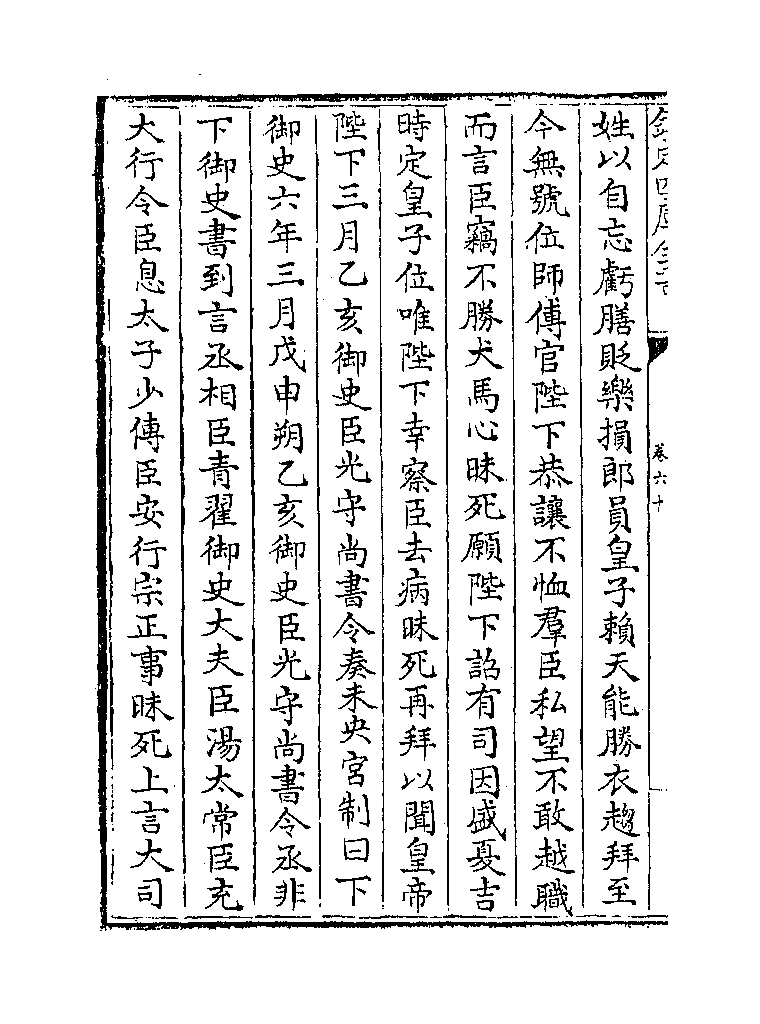 欽定四庫全書
卷六十
姓以自忘虧膳貶樂損郎員皇子賴天能勝衣趨拜至
今無號位師傅官陛下恭讓不恤羣臣私望不敢越職
而言臣竊不勝犬馬心昧死願陛下詔有司因盛夏吉
時定皇子位唯陛下幸察臣去病昧死再拜以聞皇帝
陛下三月乙亥御史臣光守尚書令奏未央宫制曰下
御史六年三月戊申朔乙亥御史臣光守尚書令丞非
下御史書到言丞相臣青翟御史大夫臣湯太常臣充
大行令臣息太子少傅臣安行宗正事昧死上言大司